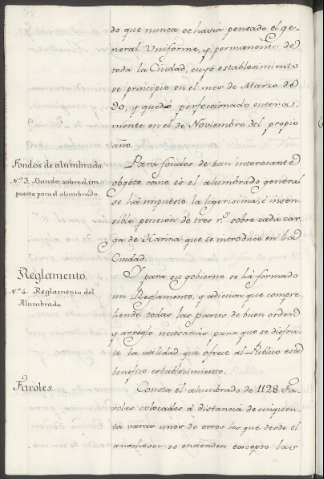 do que nunca se havia pensado el ge-
neral Uniforme, y permanente de
toda la Ciudad, cuyo establecimiento
se principio en el mes de Marzo de
90, y quedó perfeccionado entera-
mente en el de Noviembre del propio
año.
Fondos de alumbrado.
Nº 3. Bando sobre el im-
puesto para el alumbrado.
Para fondos de tan interesante
objeto como es el alumbrado general
se há impuesto la ligerisima, é insen-
sible pension de tres rs. sobre cada car-
ga de Harina que se introduce en la
Ciudad.
Reglamento.
Nº 4. Reglamento del
Alumbrado.
Y para su gobierno se há formado
un Reglamento, y adiciones que compre-
henden todas las partes de buen orden
y arreglo necesarias, para que se disfru-
te la utilidad que ofrece al Publico este
benefico establecimiento.
Faroles.
Consta el alumbrado de 1128 Fa-
roles colocados á distancia de cinquen-
ta varas unos de otros, los que desde el
anochecer se encienden excepto las